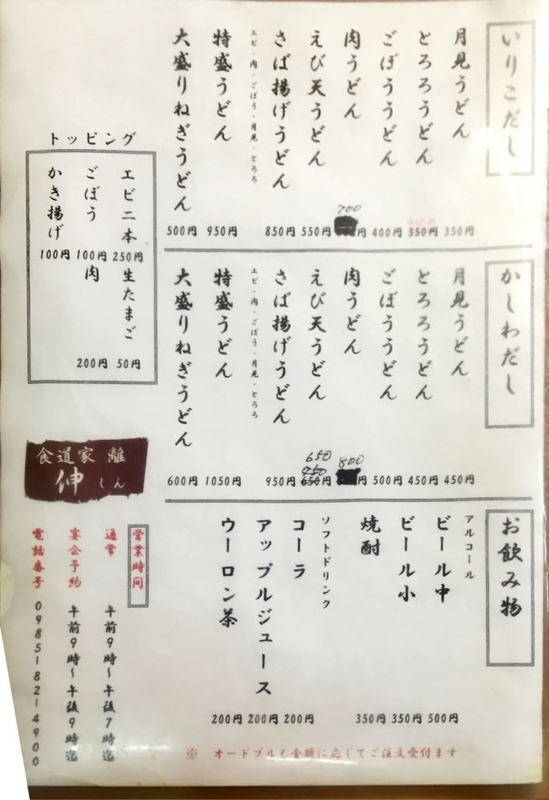 いりこだし
月見うどん 350円
とろろうどん 350円
ごぼううどん 400円
肉うどん 700 円
えび天うどん 550円
さば揚げうどん 850円
特盛うどん 950円
エビ・肉・ごぼう・月見・とろろ
大盛りねぎうどん 500円
かしわだし
月見うどん 450円
とろろうどん 450円
ごぼううどん 500円
肉うどん 800 円
えび天うどん 650 750 650円
さば揚げうどん 950円
特盛うどん 1050円
エビ・肉・ごぼう・月見・とろろ
大盛りねぎうどん 600円
お飲み物
アルコール
ビール中 500円
ビール小 350円
焼酎 350円
ソフトドリンク
コーラ 200円
アップルジュース 200円
ウーロン茶 200円
※ オードブルも金額に応じてご注文受付ます
トッピング
エビ二本 250円
生たまご 50円
ごぼう 100円
肉 200円
かき揚げ 100円
食道家 離
伸
しん
営業時間
通常 午前9時～午後7時迄
宴会予約 午前9時～午後9時迄
電話番号 0985182 4900